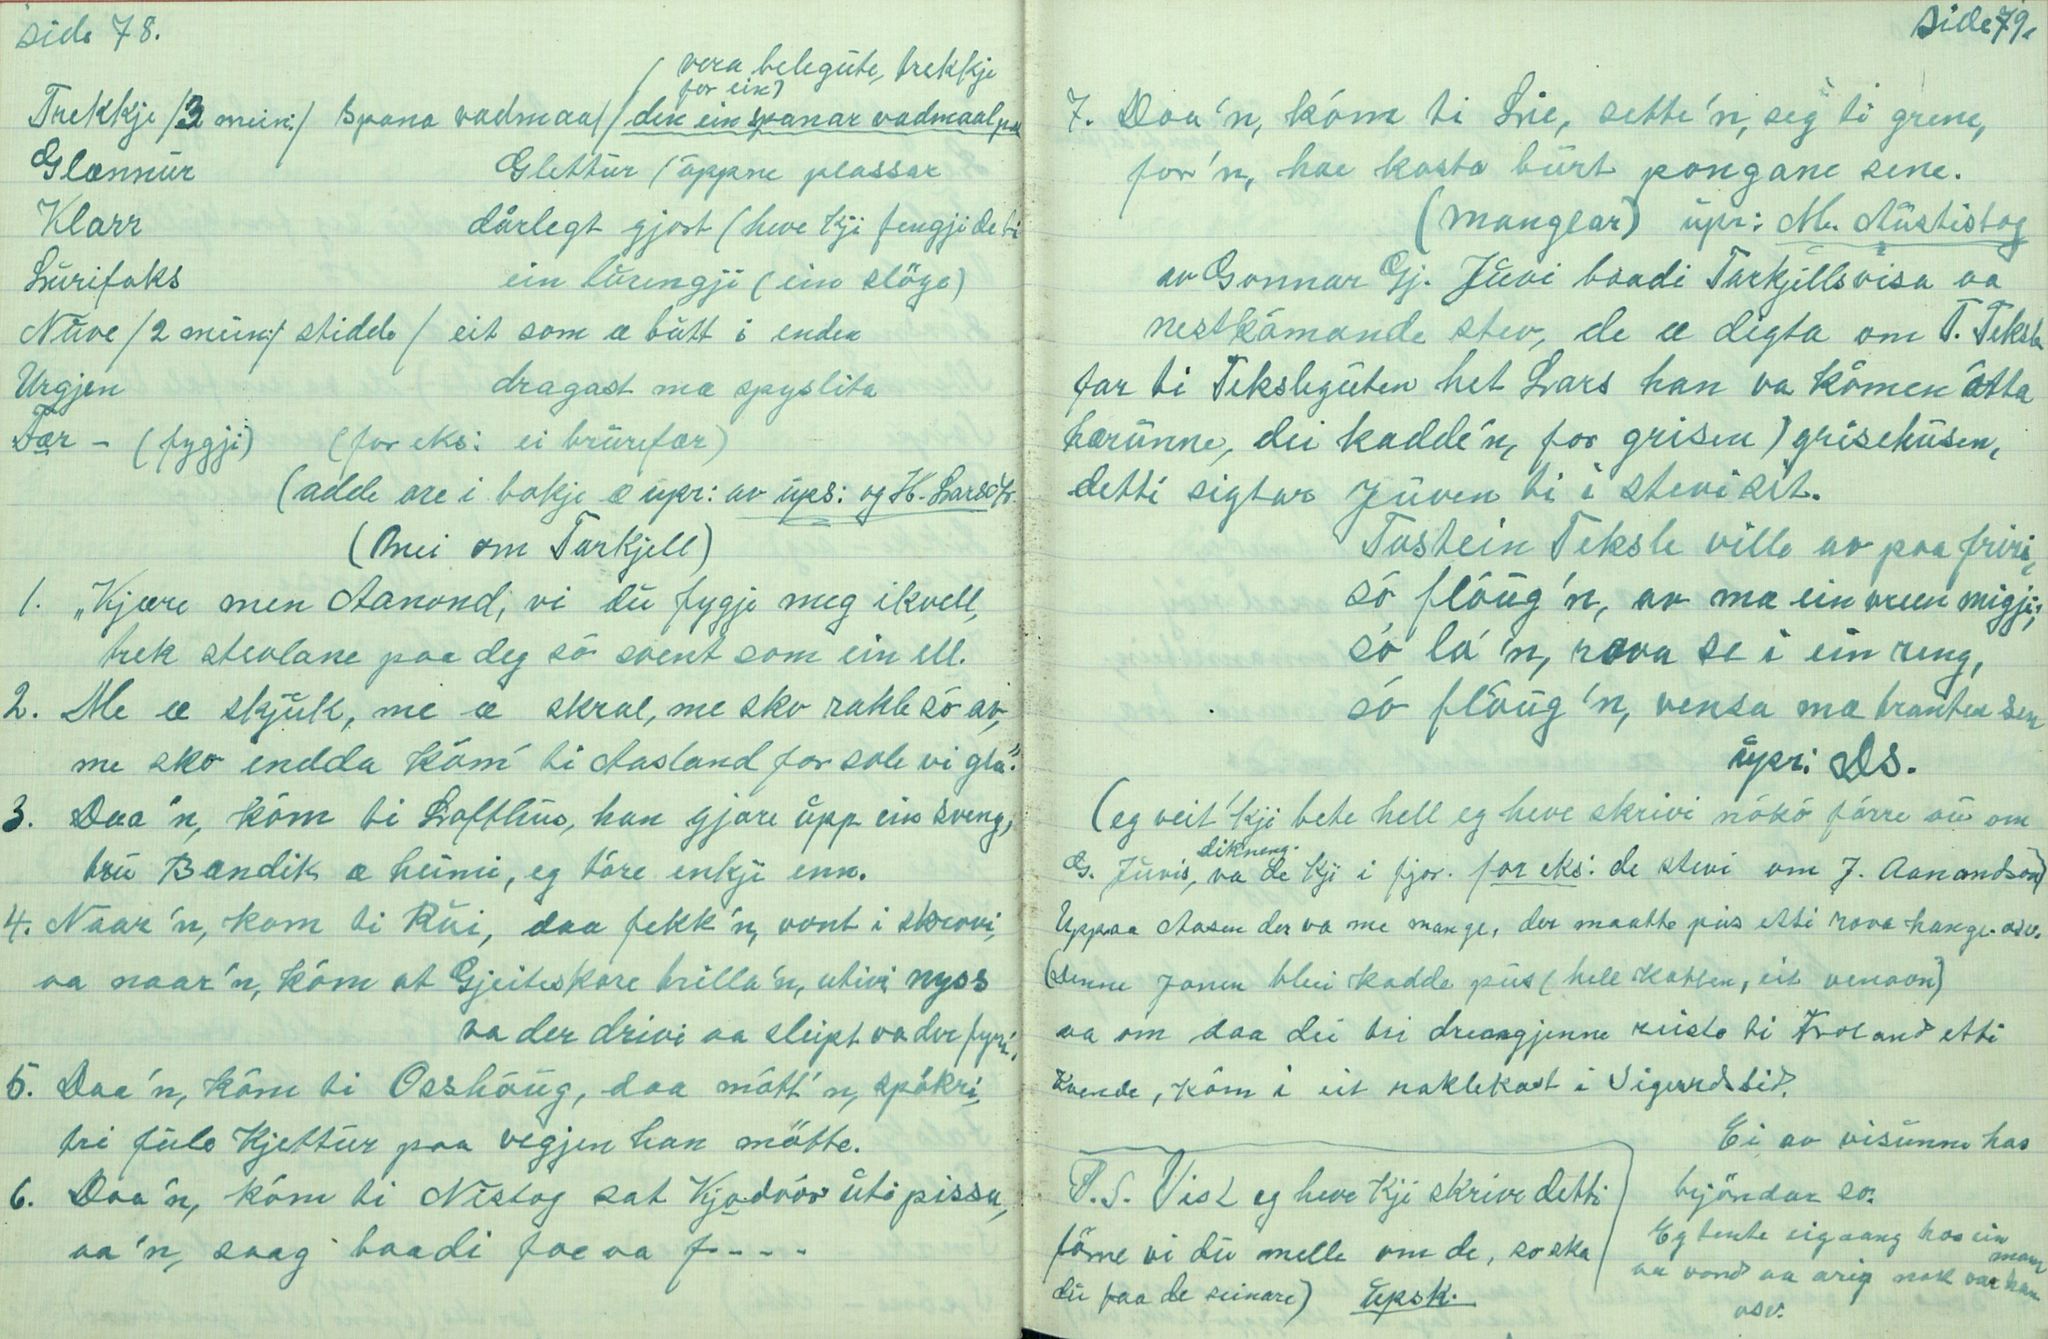 side 78.
(vera belegūte, trekkje
for ein)
Trekkje /3 mein:/ Spana vadmaal/ den ein spanar vadmaal paa
Glænnūr Glettūr (ūppne plassar
Klarr dårlegt gjort (heve kji fengji de ti
Lūrifaks ein lūrengji (ein slöge)
Nūve /2 mein:/ stidde / eit som æ būtt i enden
Urgjen dragast mæ spyslita
Fær - (fygji) (for eks: ei brūrefær)
(adde ore i bokje æ ūpr: av ūps: og H. Larson.
(Mei om Tarkjell)
1. „Kjære men Aanond, vi dū fygje meg ikvell,
trek stevlane paa deg só svent som ein ell.
2. Me æ skjūk, me æ skral, me sko rakle só av,
me sko endda kóm' ti Aasland for sole vi gla".
3. Daa'n, kóm ti Lofthūs, han gjore ūpp ein sveng,
trū Bændik æ heimi, eg tóre enkji enn.
4. Naar'n, kom ti Rūi, daa fekk'n, vont i skrovi,
aa naar'n, kóm at Gjeiteskore trilla'n, utivi nyss
aa der drivi aa sleipt va der fyri.
5. Daa'n, kóm ti Osshóūg, daa mótt'n, spókri,
tri fūle kjettūr paa vegjen han mötte.
6. Daa'n, kóm ti Nistog sat Kjodvór ūti pissa,
aa'n, saag baadi foe aa f----
side 79.
7. Daa'n, kóm ti Lie, sette'n, seg ti grene,
for'n, hae kasta būrt pongane sene.
(manglar) ūpr: M. Aūstistog
av Gonnar Gj. Jūvi baadi Tarkjellsvisa aa
nestkómande stev, de æ digta om T. Teksle
far ti Tekslegūten het Lars han va kómen åtta
hærūnne, dei kadde'n, for grisen) grisehūsen,
detti sigtar Jūven ti i stevi sit.
Tostein Teksle ville av paa friri,
só flóūg'n, av mæ ein vreen migji,
só la'n, rova se i ein reng,
só flóūg'n, vensa mæ tranten sen
ūpr: DS.
(eg veit'kji bete hell eg heve skrivi nókó fórre aū om
G. Jūvis, dikneng. va de kji i fjor. for eks: de stevi om J. Aanondson)
Uppaa Aasen der va me mange, der maatte pūs etti rova hange. osv.
(denne Jonen blei kadde pūs (hell katten, eit venaon)
aa om daa dei tri dreangjenne reiste ti Froland etti
kvende, kóm i eit raklekast i Sigurdstid.
Ei av visūnne has
byöndar so:
Eg tente eigaang hos ein
mann
aa vond aa arig nok var han
osv.
P.S. Vist eg heve kji skrive detti
förre vi dū melle om de, so ska
dū faa de seinare) ūpsk.